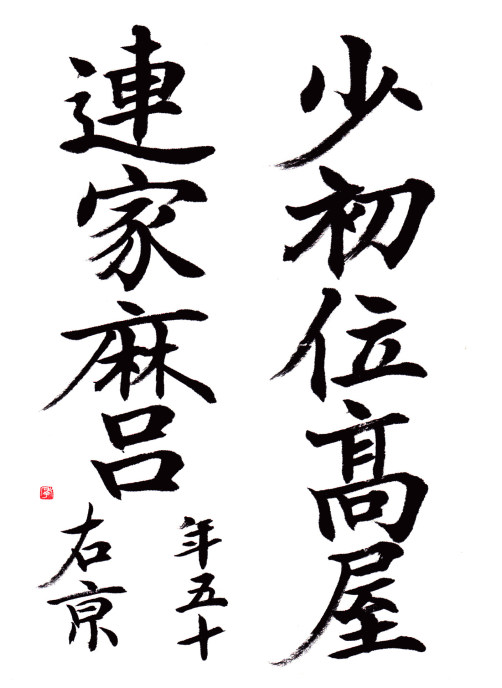 少初位髙屋
連家麻呂
年五十
右京